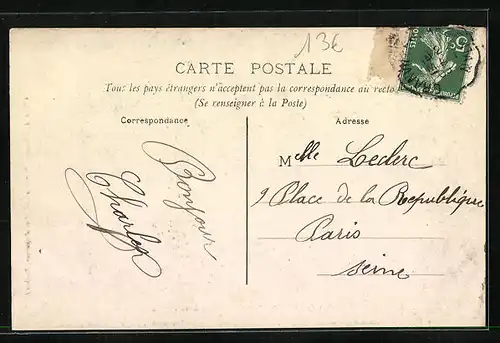 13€
CARTE POSTALE
Tous les pays étrangers n'acceptent pas la correspondance au recto
(Se renseigner à la Poste)
Correspondance
Bonjour
Charles
Adresse
Melle Leclerc
9 Place de la Republique
Paris
Seine
5c
POSTES